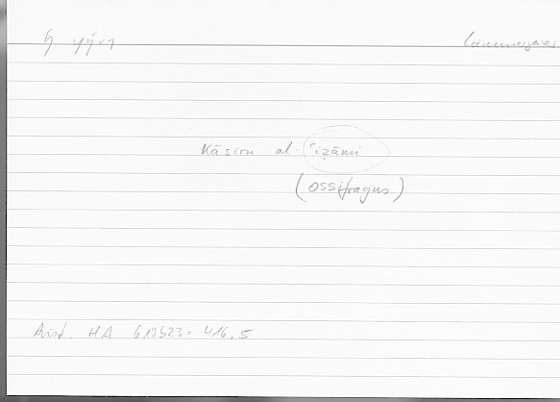 ἡ φήνη Lämmergeier
kāsiru al-ʿiẓāmi
(ossifragus)
Arist. HA 619b23 = 416.5